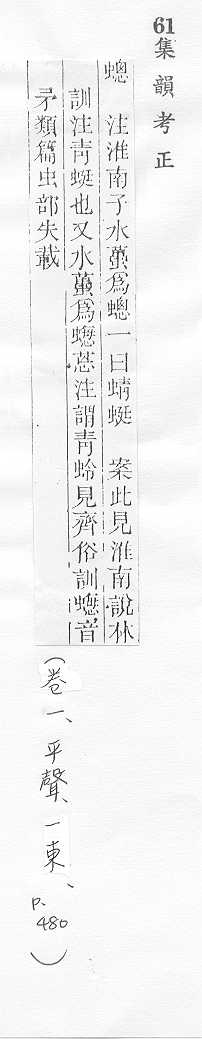 61集韻考正
蟌　注淮南子水蠆爲蟌一曰蜻蜓　案此見淮南說林
訓注青蜓也又水蠆爲蟌𦺊注謂青蛉見齊俗訓蟌音
矛類篇虫部失載
(卷一、平聲、一東、p.480)